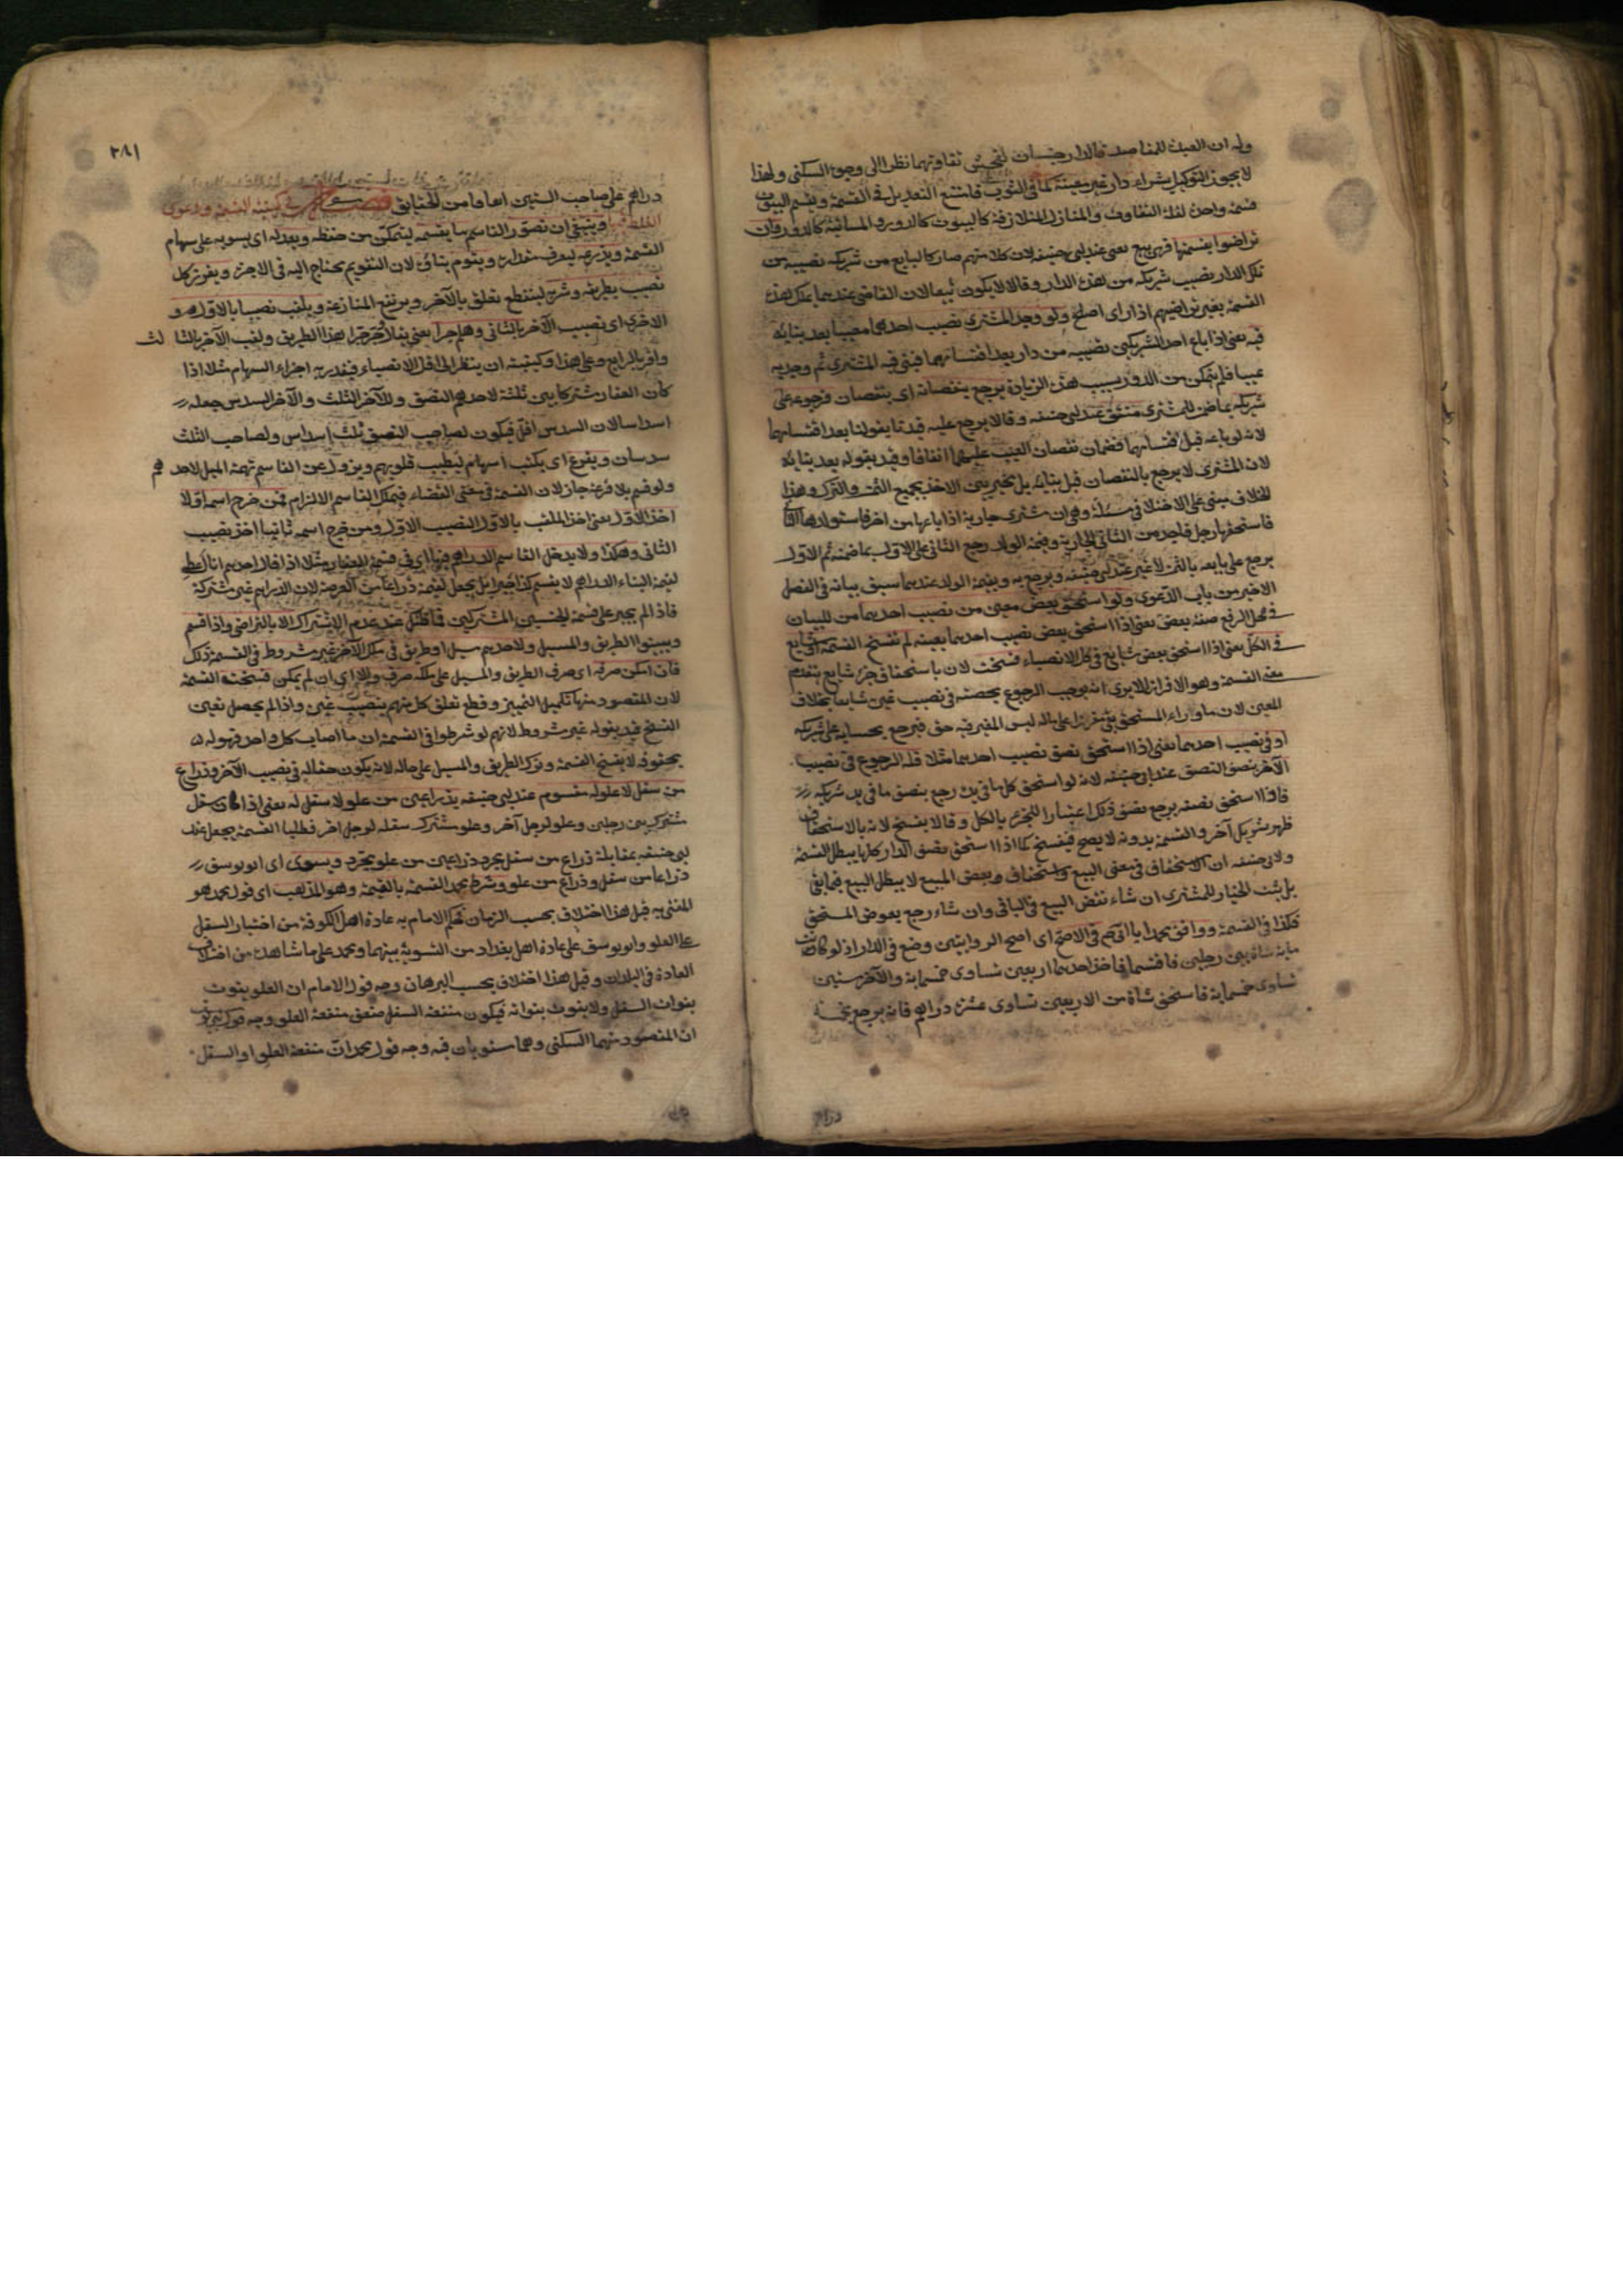 وله ان العبرة للمقاصد فالدار جنسان لفحش تفاوتهما نظرا الى وجوه السكنى ولهذا
لا يجوز التوكيل بشراء دار غير معينة كما في الثوب فامتنع التعديل في القسمة ويقسم البيوت
قسمة واحدة لقلة التفاوت والمنازل المتلازقة كالبيوت كالدور والمتباينة كالدور فان
تراضوا بقسمتها فهي بيع يعني عند ابي حنيفة لان كلا منهم صار كالبايع من شريكه نصيبه من
تلك الدار بنصيب شريكه من هذه الدار وقالا لا يكون بيعا لان القاضي عندهما يملك هذه
القسمة بغير تراضيهم اذا راى اصلح ولو وجد المشتري نصيب احدهما معيبا بعد بنائه
فيه يعني اذا باع احد الشريكين نصيبه من دار بعد اقتسامهما فبنى فيه المشتري ثم وجد به
عيبا فلم يتمكن من الرد بسبب هذه الزيادة يرجع بنقصانه اي بنقصان فرجوعه على
شريكه بما ضمن للمشتري منتف عند ابي حنيفة وقالا يرجع عليه قيدنا بقولنا بعد اقتسامهما
لانه لو باعه قبل اقتسامهما فضمان نقصان العيب عليهما اتفاقا وقيد بقوله بعد بنائه
لان المشتري لا يرجع بالنقصان قبل بنائه بل تخير بين الاخذ بجميع الثمن والترك وهذا
الخلاف مبني على الاختلاف في مسئلة وهي ان مشتري جارية اذا باعها من اخر فاستولدها الثاني
فاستحقها رجل فاخذ من الثاني الجارية وقيمة الولد رجع الثاني على الاول بما ضمنه ثم الاول
يرجع على بايعه بالثمن لا غير عند ابي حنيفة ويرجع به وبقيمة الولد عندهما سبق بيانه في الفصل
الاخير من باب الدعوى ولو استحق بعض معين من نصيب احدهما من للبيان
في محل الرفع صفة بعض يعني اذا استحق بعض نصيب احدهما بعينه لم تفسخ القسمة او شايع
في الكل يعني اذا استحق بعض شايع في كل الانصباء فسخت لان باستحقاق جزء شايع ينعدم
معنى القسمة وهو الافراز الا يرى انه يوجب الرجوع بحصته في نصيب غيره شايعا بخلاف
المعين لان ما وراء المستحق بقي مقررا على حاله ليس للغير فيه حق فيرجع بحسابه على شريكه
او في نصيب احدهما يعني اذا استحق نصف نصيب احدهما مثلا فله الرجوع في نصيب
الآخر بنصف النصف عند ابي حنيفة لانه لو استحق كل ما في يده رجع بنصف ما في يد شريكه
فاذا استحق نصفه يرجع بنصف ذلك اعتبارا للجزء بالكل وقالا يفسخ لانه بالاستحقاق
ظهر شريك آخر والقسمة بدونه لا يصح فيفسخ كما اذا استحق نصف الدار كلها يبطل القسمة
ولابي حنيفة ان الاستحقاق في معنى البيع واستحقاق بعض المبيع لا يبطل البيع فيما بقي
بل يثبت الخيار للمشتري ان شاء نقض البيع في الباقي وان شاء رجع بعوض المستحق
فكذا في القسمة ووافق محمد ابا حنيفة في الاصح اي اصح الروايتين وضع في الدار اذ لو كانت
ماية شاة بين رجلين فاقتسما فاخذ احدهما اربعين تساوي خمسماية والآخر ستين
تساوي خمسماية فاستحق شاة من الاربعين تساوي عشرة دراهم فانه يرجع بخمسة
دراهم
٢٨١
دراهم على صاحب الستين اتفاقا من الحقايق فصل في كيفية القسمة ودعوى
الغلط فيها وينبغي ان يصور القاسم ما يقسمه ليتمكن من حفظه ويعدله اي يسويه على سهام
القسمة ويذرعه ليعرف مقداره ويقوم بناؤه لان التقويم يحتاج اليه في الاخرة ويفرز كل
نصيب بطريقه وشربه لينقطع تعلق بالآخر ويرتفع المنازعة ويلقب نصيبا بالاول و
الآخر اي نصيب الآخر بالثاني وهلم جرا يعني بهذا الطريق ولقب الآخر بالثالث
وآخر بالرابع وعلى هذا وكيفيته ان ينظر الى اقل الانصباء فيقدر به اجزاء السهام مثلا اذا
كان العقار مشتركا بين ثلثة لاحدهم النصف وللآخر الثلث والآخر السدس جعله
اسداسا لان السدس اقل فيكون لصاحب النصف ثلثة اسداس ولصاحب الثلث
سدسان ويقرع اي يكتب اسهام لتطيب قلوبهم ويزول عن القاسم تهمة الميل لاحدهم
ولو قسم بلا قرعة جاز لان القسمة في معنى القضاء فيملك القاسم الالزام فمن خرج اسمه اولا
اخذ الاول يعني اخذ الملقب بالاول النصيب الاول ومن خرج اسمه ثانيا اخذ نصيب
الثاني وهكذا ولا يدخل القاسم الدراهم فيها اي في قسمة العقار مثلا اذا قال احدهم انا اعطي
قيمة البناء الدراهم لا يقسم كذا جبرا بل يجعل لقيمة ذراعا من العرصة لان الدراهم غير مشتركة
فاذا لم يجبر على قسمة الجنسين المشتركين فما ظنك عند عدم الاشتراك الا بالتراضي واذا قسم
وبينوا الطريق والمسيل ولاحدهم مسيل او طريق في ملك الآخر غير مشروط في القسمة ذلك
فان امكن صرفه اي صرف الطريق والمسيل على ملكه صرف والا اي ان لم يمكن فسخت القسمة
لان المقصود منها تكميل التمييز وقطع تعلق كل منهم بنصيب غيره واذا لم يحصل تعين
الفسخ قيد بقوله غير مشروط لانهم لو شرطوا في القسمة ان ما اصاب كل واحد فهو له
بحقوقه لا يفسخ القسمة وترك الطريق والمسيل على حاله لانه يكون حقا له في نصيب الآخر وذراع
من سفل لا علو له مقسوم عند ابي حنيفة بذراعين من علو لا سفل له يعني اذا كان سفل
مشترك بين رجلين وعلو لرجل آخر وعلو مشترك سفله لرجل اخر فطلبا القسمة يجعل عند
ابي حنيفة بمقابلة ذراع من سفل مجرد ذراعين من علو مجرد ويسوى اي ابو يوسف
ذراعا من سفل وذراع من علو وشرط محمد القسمة بالقيمة وهو المذهب اي قول محمد هو
المفتى به قيل هذا اختلاف بحسب الزمان فحكم الامام به عادة اهل الكوفة من اختيار السفل
على العلو وابو يوسف على عادة اهل بغداد من التسوية بينهما ومحمد على ما شاهده من اختلاف
العادة في البلدان وقيل هذا اختلاف بحسب البرهان وجه قول الامام ان العلو يفوت
بفوات السفل ولا يفوت بفواته فيكون منفعة السفل ضعف منفعة العلو وجه قول ابي يوسف
ان المقصود منهما السكنى وهما مستويان فيه وجه قول محمد ان منفعة العلو او السفل